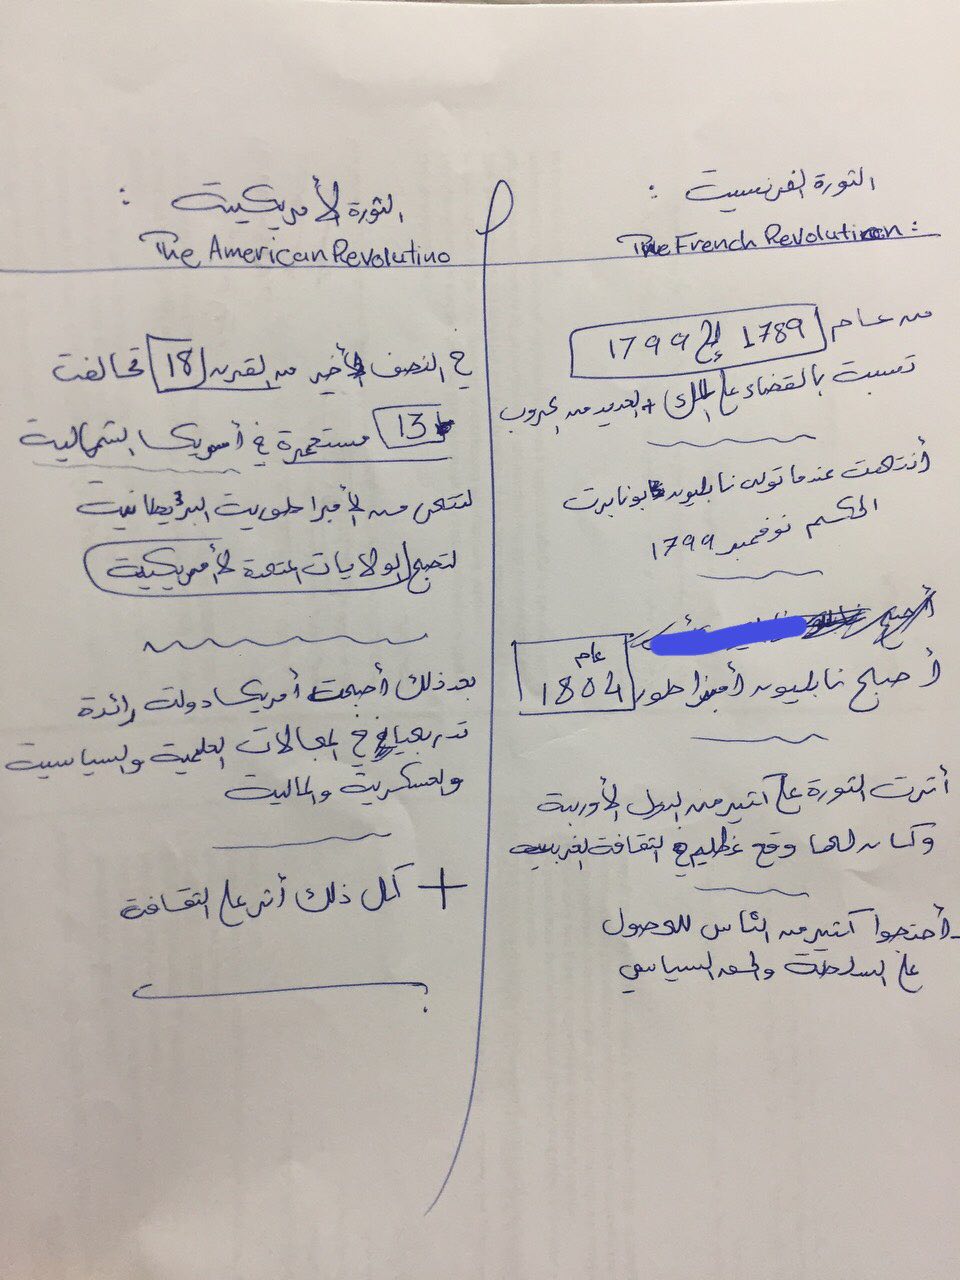 الثورة الفرنسية :
The French Revolution :
من عام 1789 إلى 1799
تسببت بالقضاء على الملك + العديد من الحروب
أنتهت عندما تولى نابليون بونابرت
الحكم نوفمبر 1799
أصبح
أصبح نابليون أمبراطور عام 1804
أثرت الثورة على كثير من الدول الأوربية
وكان لها وقع عظيم في الثقافة الغربية
- أحتجوا كثير من الناس للوصول
على السلطة والسياسي
الثورة الأمريكية :
The American Revolutino
في النصف الأخير من القرن 18 تحالفت
13 مستعمرة في أمريكا الشمالية
من الأمبراطورية البريطانية
لتصبح الولايات المتحدة الأمريكية
بعد ذلك أصبحت أمريكا دولة رائدة
تدريجيا في المجالات العلمية والسياسية
والعسكرية والمالية
+ كل ذلك أثر على الثقافة